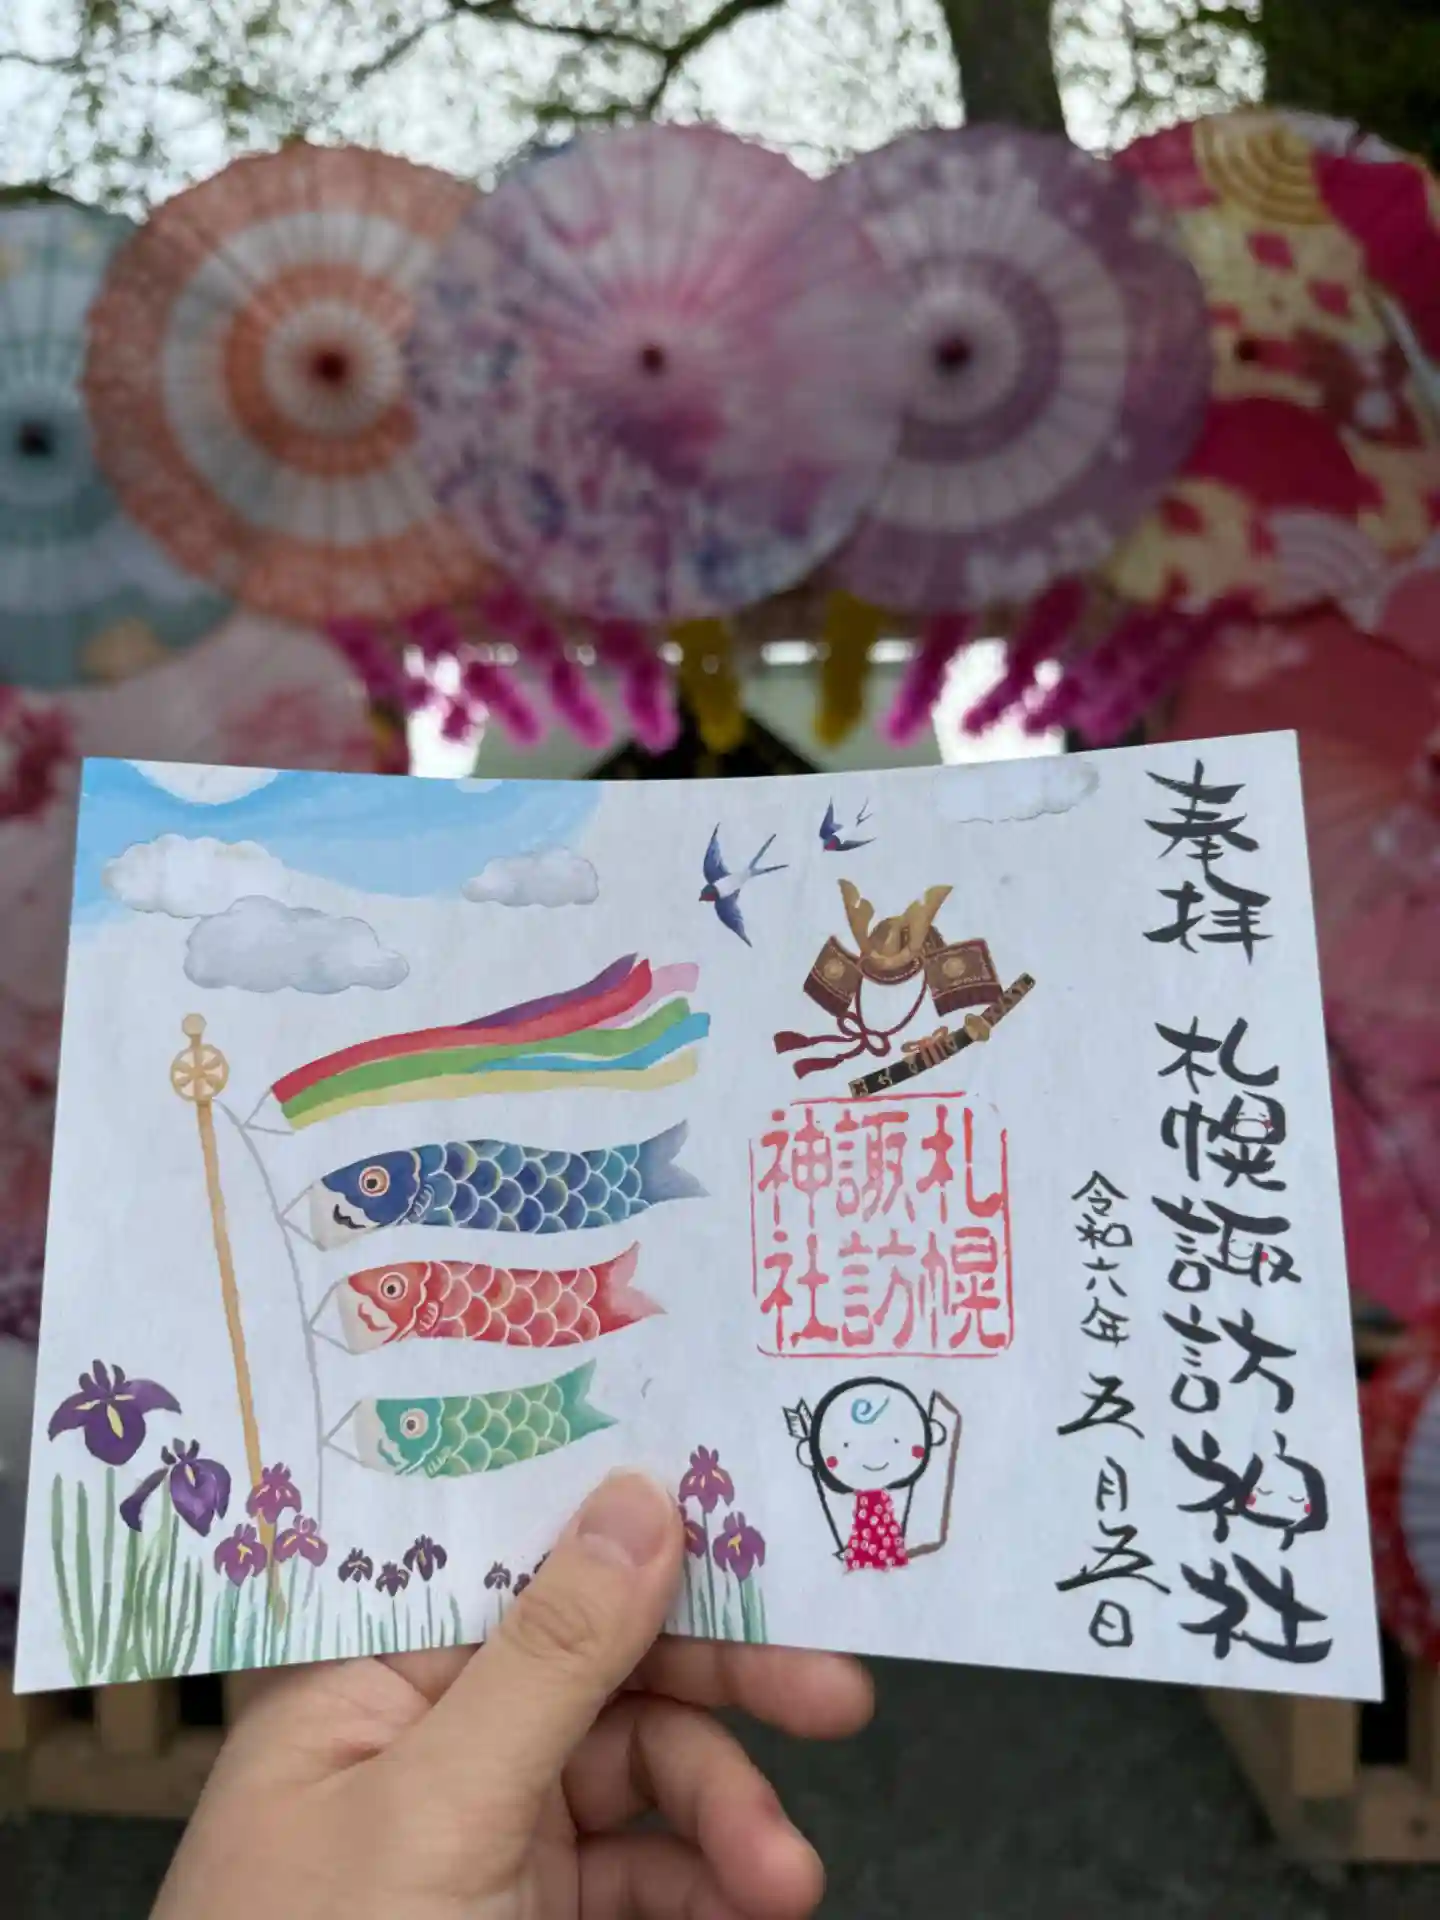 奉拝
札幌諏訪神社
令和六年五月五日
札幌
諏訪
神社